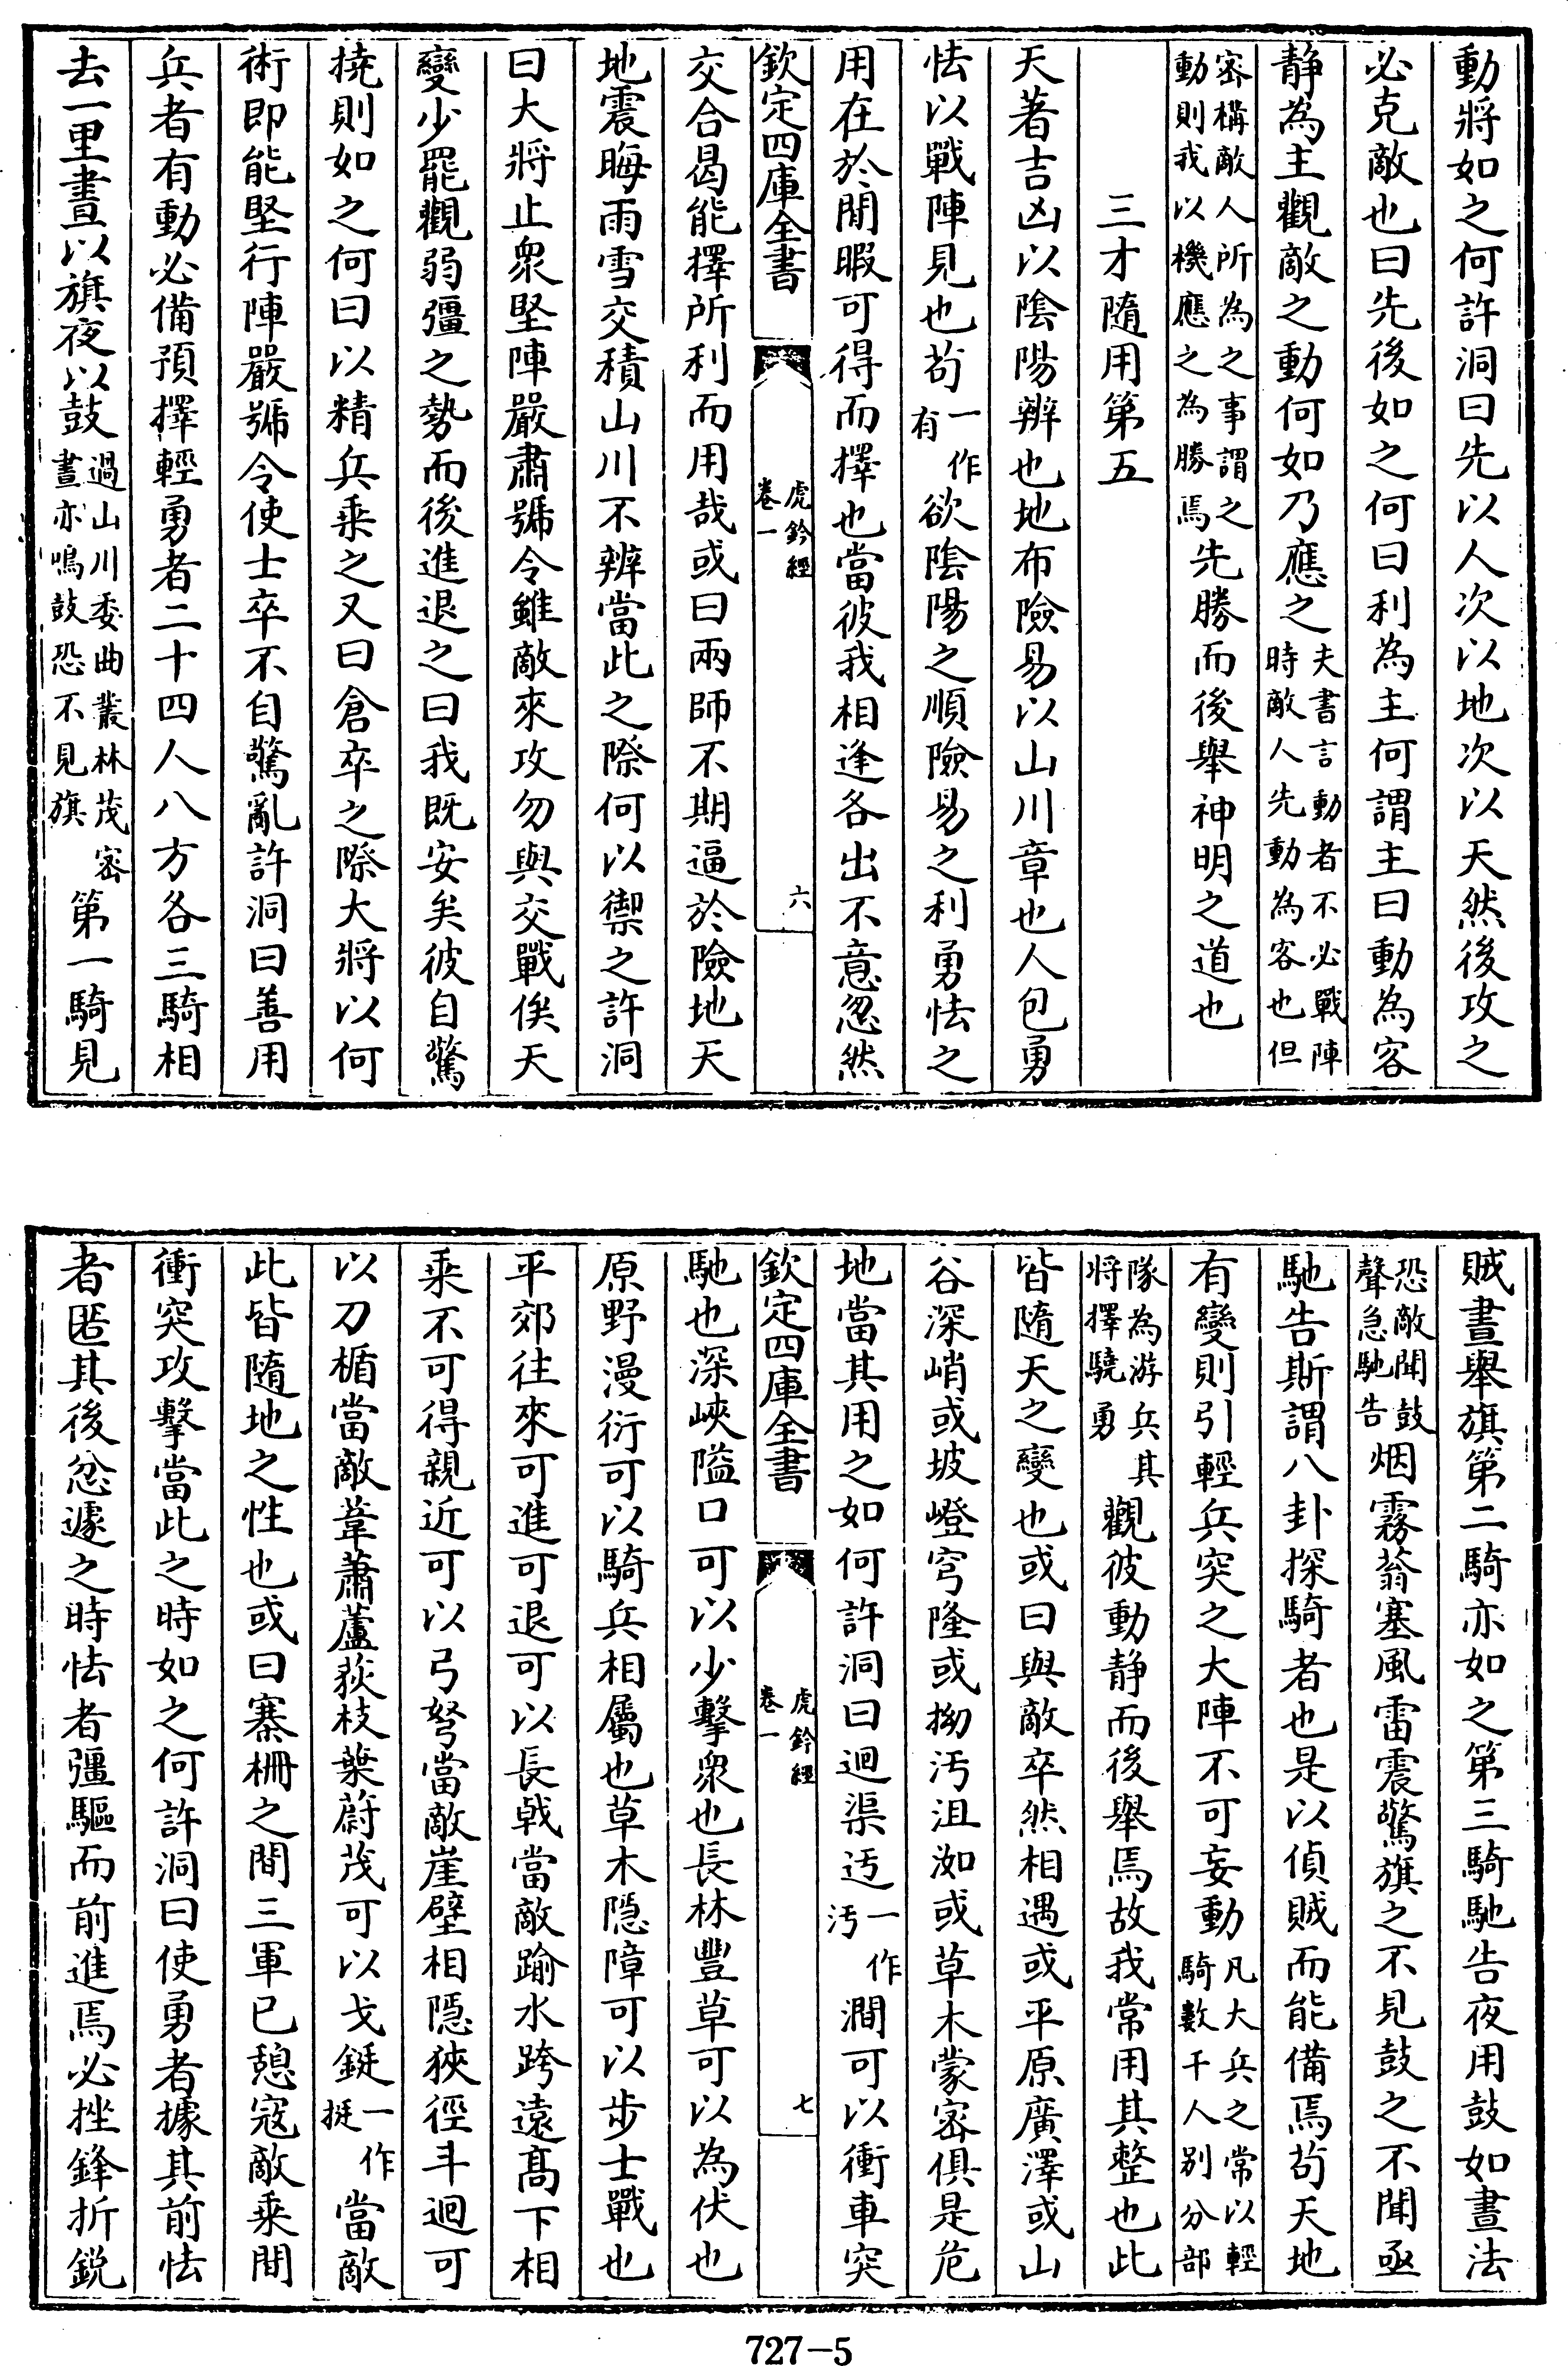 動將如之何許洞曰先以人次以地次以天然後攻之
必克敵也曰先後如之何曰利為主何謂主曰動為客
静為主觀敵之動何如乃應之夫書言動者不必戰陣時敵人先動為客也但
密構敵人所為之事謂之動則我以機應之為勝焉先勝而後舉神明之道也
三才隨用第五
天著吉凶以陰陽辨也地布險易以山川章也人包勇
怯以戰陣見也苟一作有欲陰陽之順險易之利勇怯之
用在於閒暇可得而擇也當彼我相逢各出不意忽然
欽定四庫全書
虎鈐經
卷一
六
交合曷能擇所利而用哉或曰兩師不期逼於險地天
地震晦雨雪交積山川不辨當此之際何以禦之許洞
曰大將止衆堅陣嚴肅號令雖敵來攻勿與交戰俟天
變少罷觀弱彊之勢而後進退之曰我既安矣彼自驚
撓則如之何曰以精兵乘之又曰倉卒之際大將以何
術即能堅行陣嚴號令使士卒不自驚亂許洞曰善用
兵者有動必備預擇輕勇者二十四人八方各三騎相
去一里晝以旗夜以鼓過山川委曲叢林茂密晝亦鳴鼓恐不見旗第一騎見
賊晝舉旗第二騎亦如之第三騎馳告夜用鼓如晝法
恐敵聞鼓聲急馳告烟霧蓊塞風雷震驚旗之不見鼓之不聞亟
馳告斯謂八卦探騎者也是以偵賊而能備焉苟天地
有變則引輕兵突之大陣不可妄動凡大兵之常以輕騎數千人别分部
隊為游兵其將擇驍勇觀彼動静而後舉焉故我常用其整也此
皆隨天之變也或曰與敵卒然相遇或平原廣澤或山
谷深峭或坡嶝穹隆或拗汚沮洳或草木蒙密俱是危
地當其用之如何許洞曰迴渠迃一作汚澗可以衝車突
欽定四庫全書
虎鈐經
卷一
七
馳也深峽隘口可以少擊衆也長林豐草可以為伏也
原野漫衍可以騎兵相屬也草木隱障可以步士戰也
平郊往來可進可退可以長戟當敵踰水跨遠高下相
乘不可得親近可以弓弩當敵崖壁相隱狹徑斗迴可
以刀楯當敵葦蕭蘆荻枝葉蔚茂可以戈鋋一作挻當敵
此皆隨地之性也或曰寨栅之間三軍已憩寇敵乘間
衝突攻擊當此之時如之何許洞曰使勇者據其前怯
者匿其後忿遽之時怯者彊驅而前進焉必挫鋒折鋭
727-5